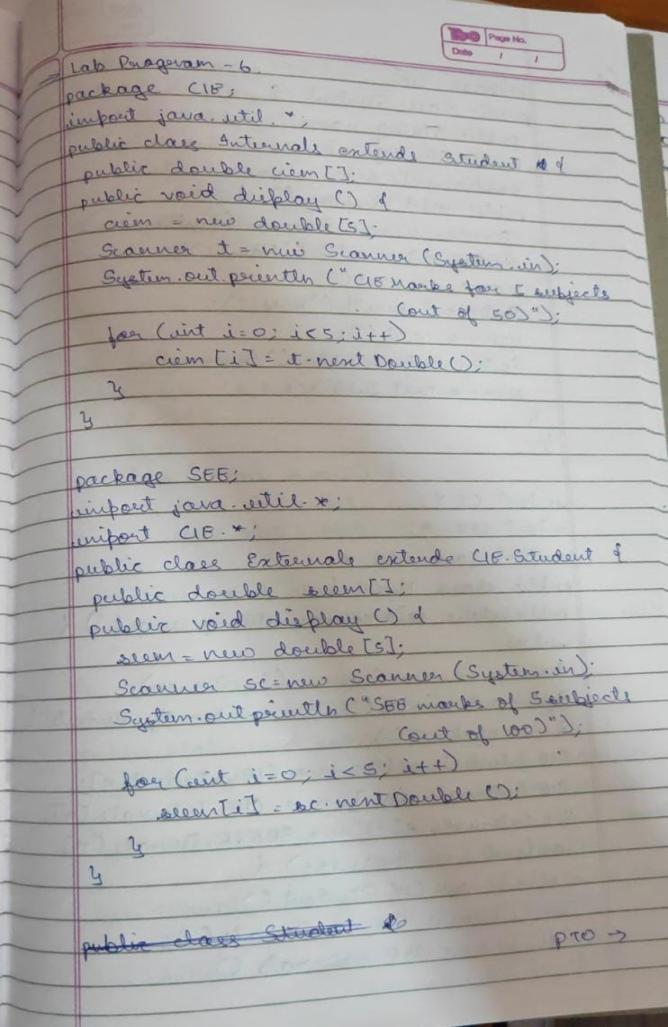 Page No.
Date / /
→ Lab Program - 6
package CIE;
import java.util.*;
public class Internals extends Student {
public double ciem[];
public void display () {
ciem = new double [5];
Scanner t = new Scanner (System.in);
System.out.println ("CIE Marks for 5 subjects
(out of 50)");
for (int i=0; i<5; i++)
ciem [i] = t.next Double ();
}
}
package SEE;
import java.util.*;
import CIE.*;
public class Externals extends CIE.Student {
public double seem[];
public void display () {
seem = new double [5];
Scanner sc = new Scanner (System.in);
System.out println ("SEE marks of 5 subjects
(out of 100)");
for (int i=0; i<5; i++)
seem[i] = sc.next Double ();
}
}
public class Student {
PTO →